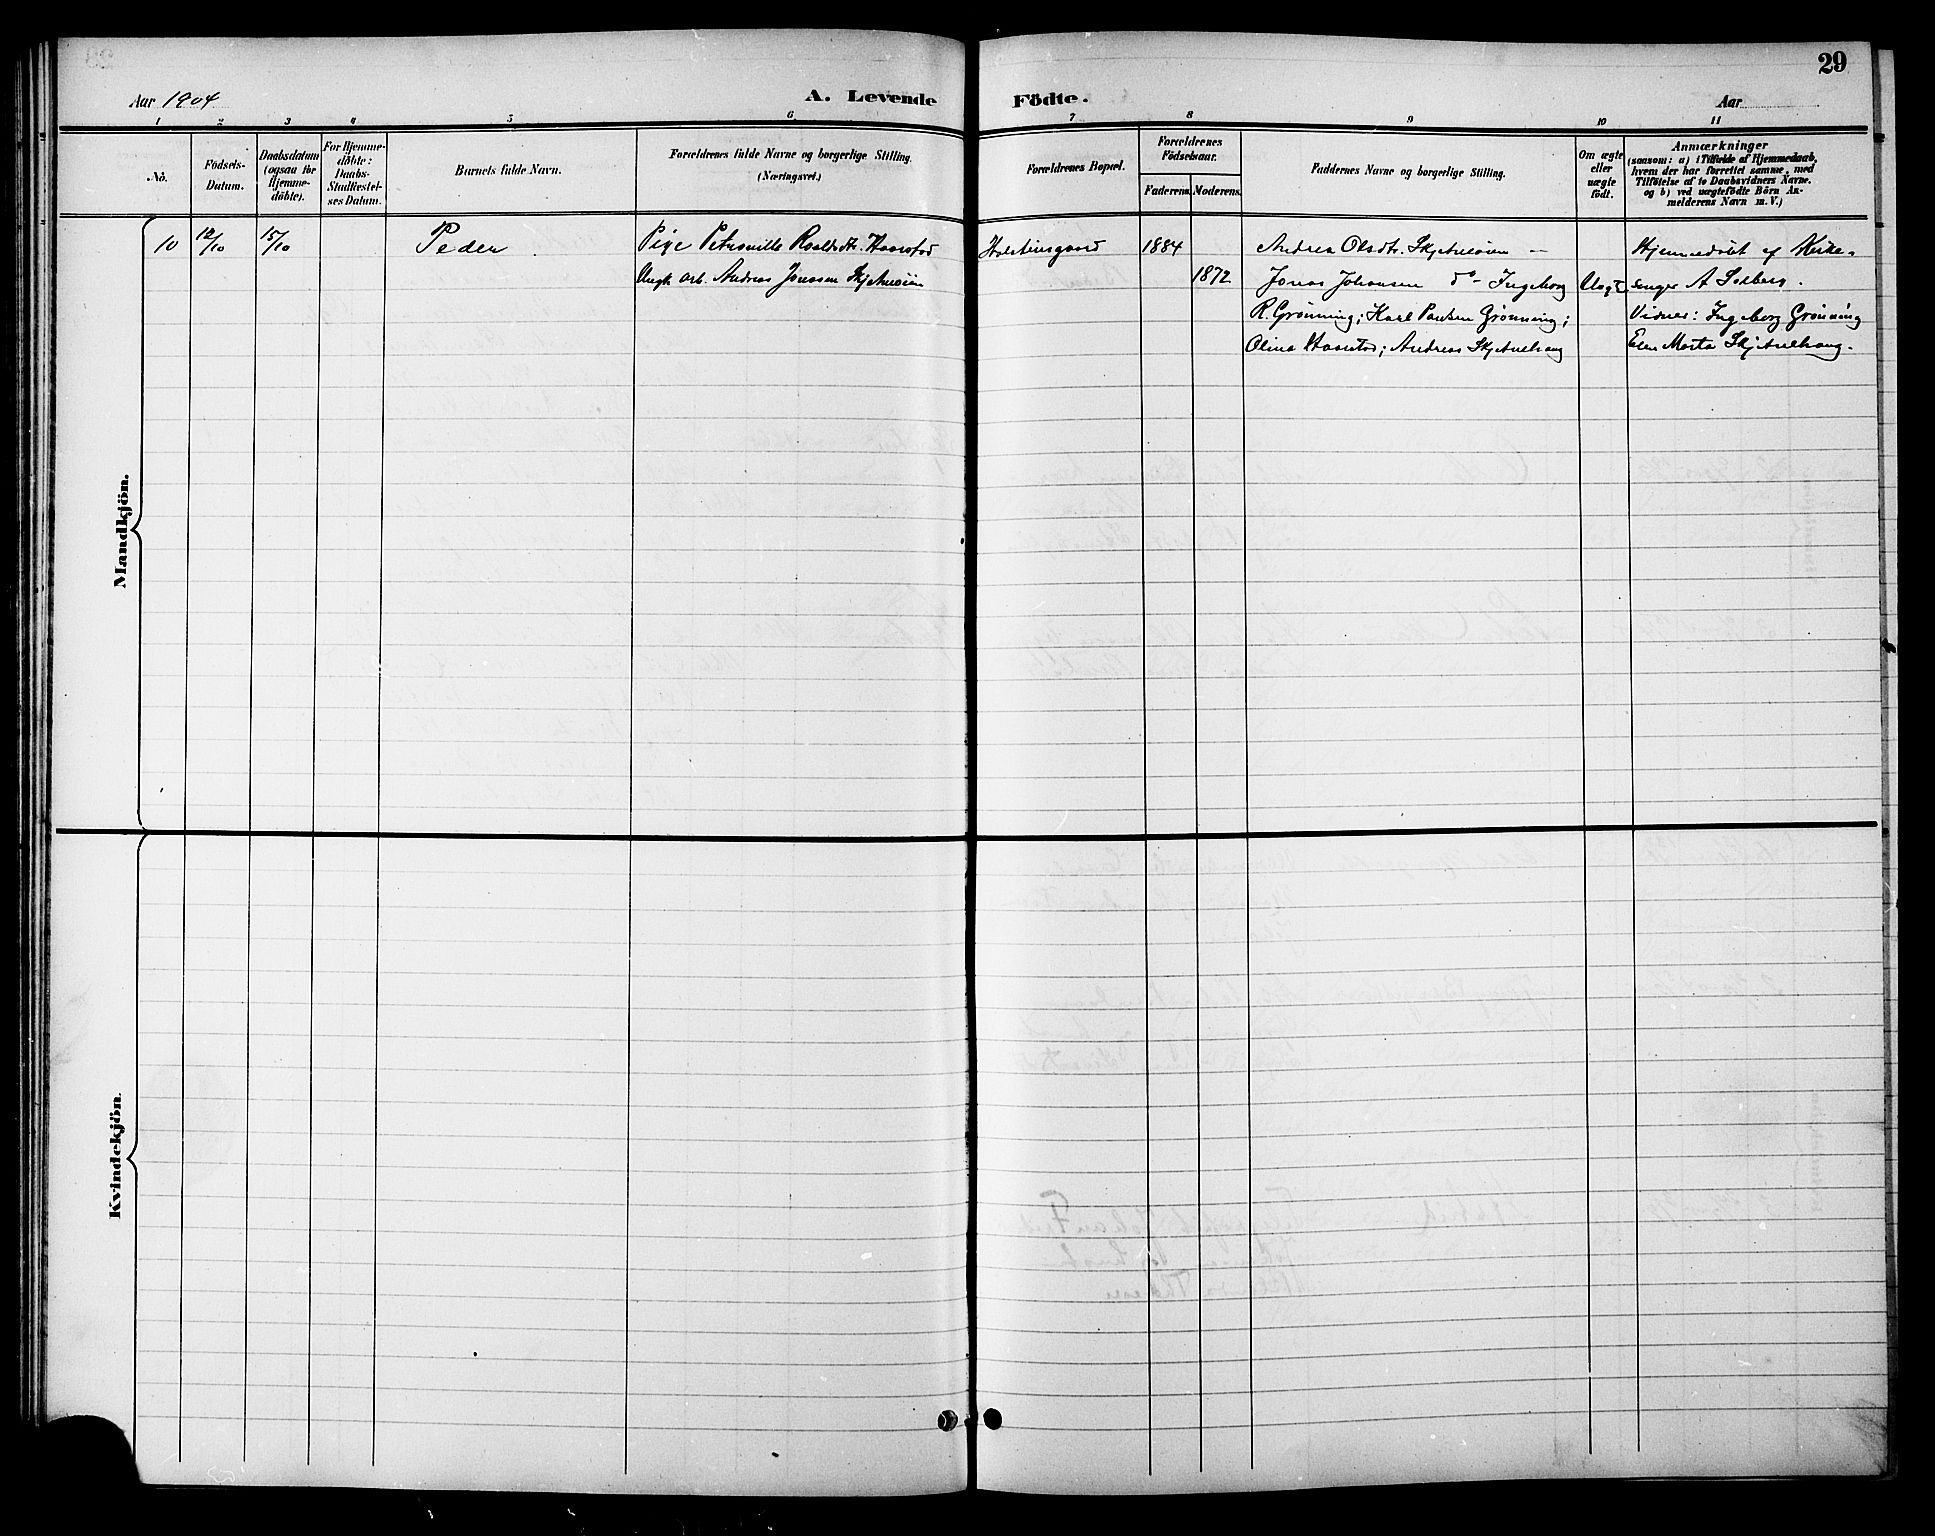 29
Aar 1904
A. Levende Födte.
Aar
1 2 3 4 5 6 7 8 9 10 11
No.
Födsels-
Datum.
Daabsdatum
(ogsaa for
Hjemme-
döbte).
For Hjemme-
döbte:
Daabs-
Stadfæstel-
ses Datum.
Barnets fulde Navn.
Forældrenes fulde Navne og borgerlige Stilling.
(Næringsvei.)
Forældrenes Bopæl.
Forældrenes
Födselsaar.
Faderens. Moderens.
Faddernes Navne og borgerlige Stilling.
Om ægte
eller
uægte
födt.
Anmærkninger
(saasom: a) i Tilfælde af Hjemmedaab,
hvem der har forrettet samme, med
Tilföielse af to Daabsvidners Navne.
og b) ved uægtefödte Börn An-
melderens Navn m. V.)
Mandkjön.
10 12/10 15/10 Peder
Pige Petronille Roaldsdt.
Ungk. arb. Andreas Jonssen
1884
1872
Andrea Olsdt.
Jonas Johansen do - Ingeborg
R. Grønning; Karl Paulsen Grønning;
Olina Andreas Skjetnehaug
Uægt.
Hjemmedøbt af Kirke-
sanger A Solberg.
Vidner: Ingeborg Grønning
Elen Marta Skjetnehaug.
Kvindekjön.